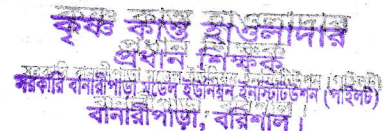 কৃষ্ণ কান্ত হাওলাদার
প্রধান শিক্ষক
সরকারি বানারীপাড়া মডেল ইউনিয়ন ইনস্টিটিউশন (পাইলট)
বানারীপাড়া, বরিশাল।